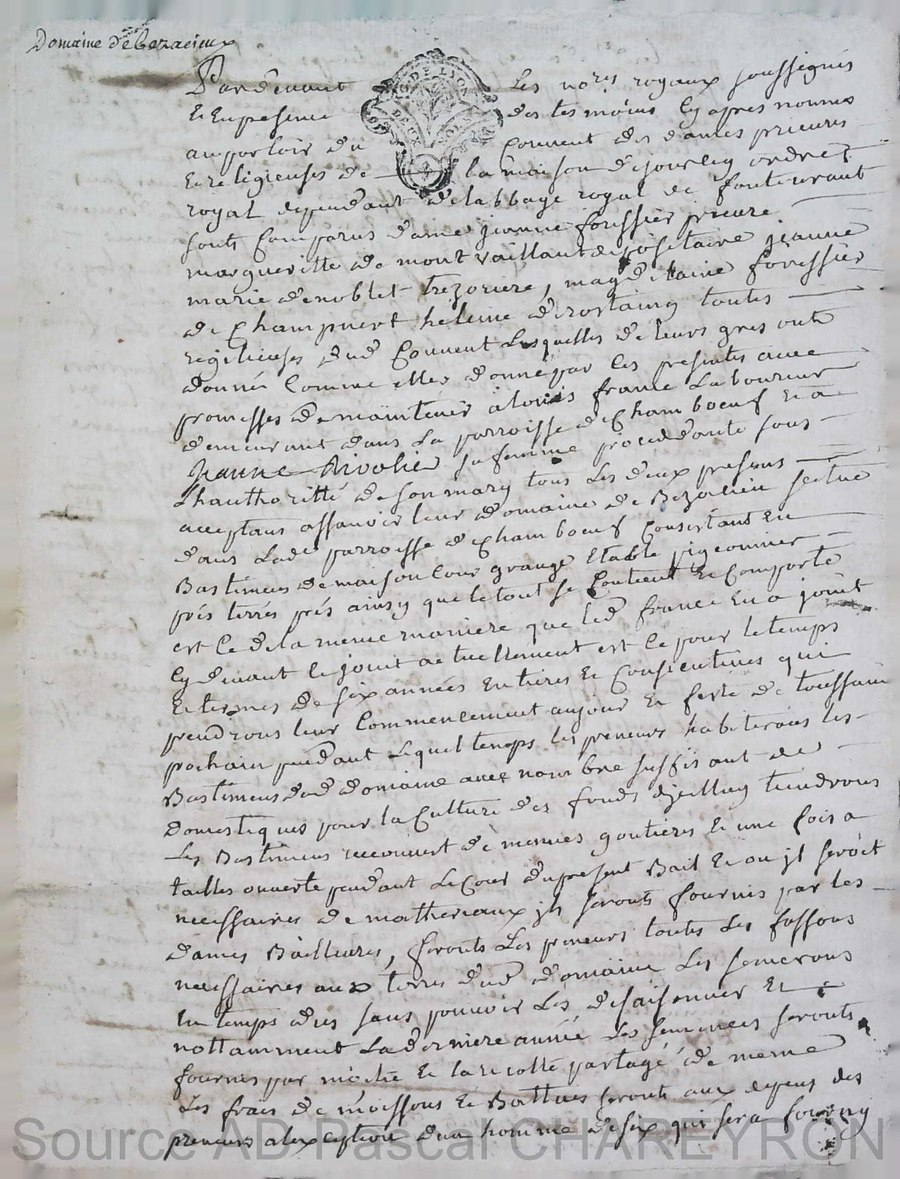 Domaine de bezacieux
Pardevant les no.res royaux soussignés
Et En presence des tesmoins Cy apres nommes
G. DE LYON
au parloir du Couvent des dames prieures
Et religieuses de la maison de jourcey ordre
royal dependant de labbaye royal de fonteuraut
sonts Comparus dame jeanne forissier prieure
margueritte de mont vaillant depositaire jeanne
marie denoblet trezoriere, magdelaine forissier
de Champvert heleine de rostaing toutes
regilieuses dud Couvent Lesquelles de leurs gres onts
donné Comme elles donne par les presentes avec
promesses de maintenir a louis france Laboureur
demeurant dans La parroisse de Chamboeuf Et a
Jeanne Rivolier sa femme procedante sous
Lhauthoritté de son mary tous Les deux presens
acceptans assavoir leur domaine de Bezacieu scitué
dans Lad.e parroisse de Chamboeuf Consistant En
Bastimens de maison Cour grange Etable pigeonnier
prés terres prés ainsy que le tout se Contient Et Comporte
est Ce de la meme maniere que led france En a jouit
Cy devant Et jouit actuellement est Ce pour le temps
Et termes de six années Entieres Et Consecutives qui
prendrons leur Commencement au jour Et feste de toussaint
prochain pendant Lequel temps les preneurs habiterons les
Bastimens dud domaine avec nombre suffisant de
Domestiques pour la Culture des fonds diceluy tiendrons
Les Bastimens recouvert de memes goutieres Et une fois a
tailles ouverte pendant Le Cour du present Bail Et ou jl seroit
necessaires de matheriaux jls seronts fournis par les
dames Bailleures, feronts Les preneurs toutes Les fassons
necessaires aux terres dud domaine Les semerons
En temps dus sans pouvoir Les desaisonner Et
nottamment La derniere année Les semences seronts
fournis par moitié Et la recolte partagé de meme
Les frais de moissons Et Battues seronts aux depens des
preneurs a lexception dun homme de six qui sera fourny
Source AD Pascal CHAREYRON